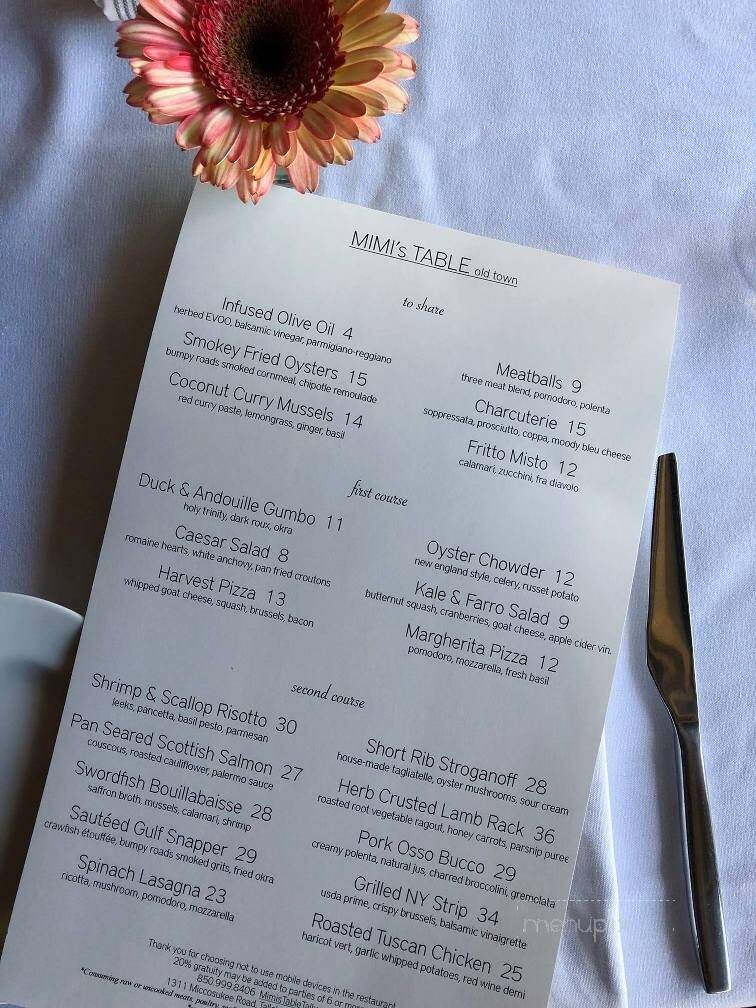 MIMI's TABLE old town
to share
Infused Olive Oil 4
herbed EVOO, balsamic vinegar, parmigiano-reggiano
Smokey Fried Oysters 15
bumpy roads smoked cornmeal, chipotle remoulade
Coconut Curry Mussels 14
red curry paste, lemongrass, ginger, basil
Meatballs 9
three meat blend, pomodoro, polenta
Charcuterie 15
soppressata, prosciutto, coppa, moody bleu cheese
Fritto Misto 12
calamari, zucchini, fra diavolo
first course
Duck & Andouille Gumbo 11
holy trinity, dark roux, okra
Caesar Salad 8
romaine hearts, white anchovy, pan fried croutons
Harvest Pizza 13
whipped goat cheese, squash, brussels, bacon
Oyster Chowder 12
new england style, celery, russet potato
Kale & Farro Salad 9
butternut squash, cranberries, goat cheese, apple cider vin.
Margherita Pizza 12
pomodoro, mozzarella, fresh basil
second course
Shrimp & Scallop Risotto 30
leeks, pancetta, basil pesto, parmesan
Pan Seared Scottish Salmon 27
couscous, roasted cauliflower, palermo sauce
Swordfish Bouillabaisse 28
saffron broth, mussels, calamari, shrimp
Sautéed Gulf Snapper 29
crawfish étouffée, bumpy roads smoked grits, fried okra
Spinach Lasagna 23
ricotta, mushroom, pomodoro, mozzarella
Short Rib Stroganoff 28
house-made tagliatelle, oyster mushrooms, sour cream
Herb Crusted Lamb Rack 36
roasted root vegetable ragout, honey carrots, parsnip puree
Pork Osso Bucco 29
creamy polenta, natural jus, charred broccolini, gremolata
Grilled NY Strip 34
usda prime, crispy brussels, balsamic vinaigrette
Roasted Tuscan Chicken 25
haricot vert, garlic whipped potatoes, red wine demi
Thank you for choosing not to use mobile devices in the restaurant
20% gratuity may be added to parties of 6 or more
850.999.8406
*Consuming raw or uncooked meats, poultry,
1311 Miccosukee Road,